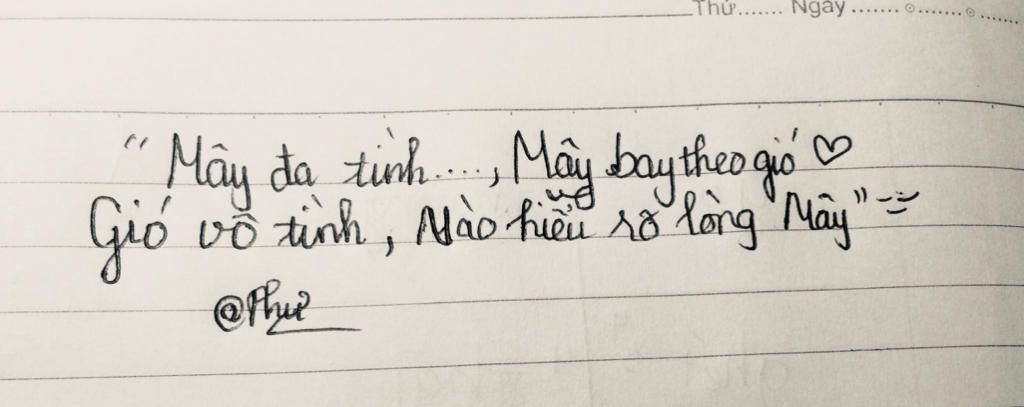 Thứ....... Ngày ....................
“Mây đa tình...., Mây bay theo gió ♡
Gió vô tình, Nào hiểu rõ lòng Mây”
@Thư